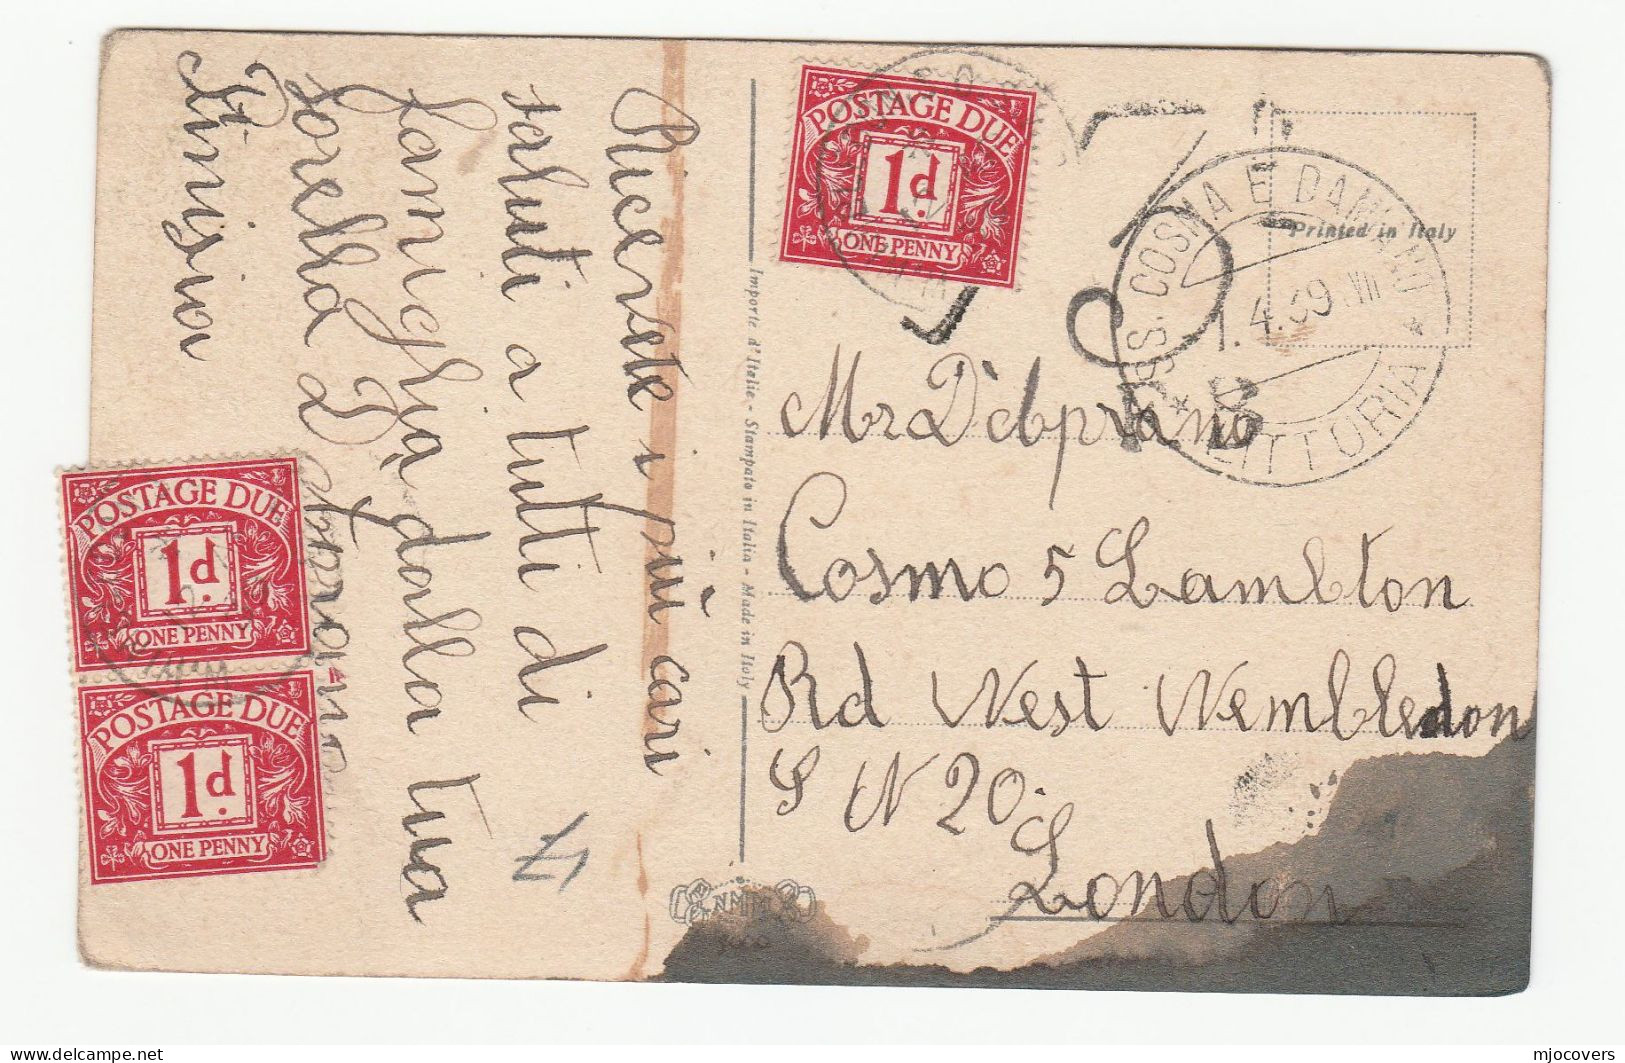 Ricevete i più cari
saluti a tutti di
famiglia dalla tua
sorella D
Printed in Italy
SS. COSMA E DAMIANO
1.4.39.XVII
* LITTORIA *
T
POSTAGE DUE
1d.
ONE PENNY
POSTAGE DUE
1d.
ONE PENNY
POSTAGE DUE
1d.
ONE PENNY
Importé d'Italie - Stampato in Italia - Made in Italy
Mr
Cosmo 5 Lambton
Rd West Wembledon
S W 20.
London
NMM
mjocovers